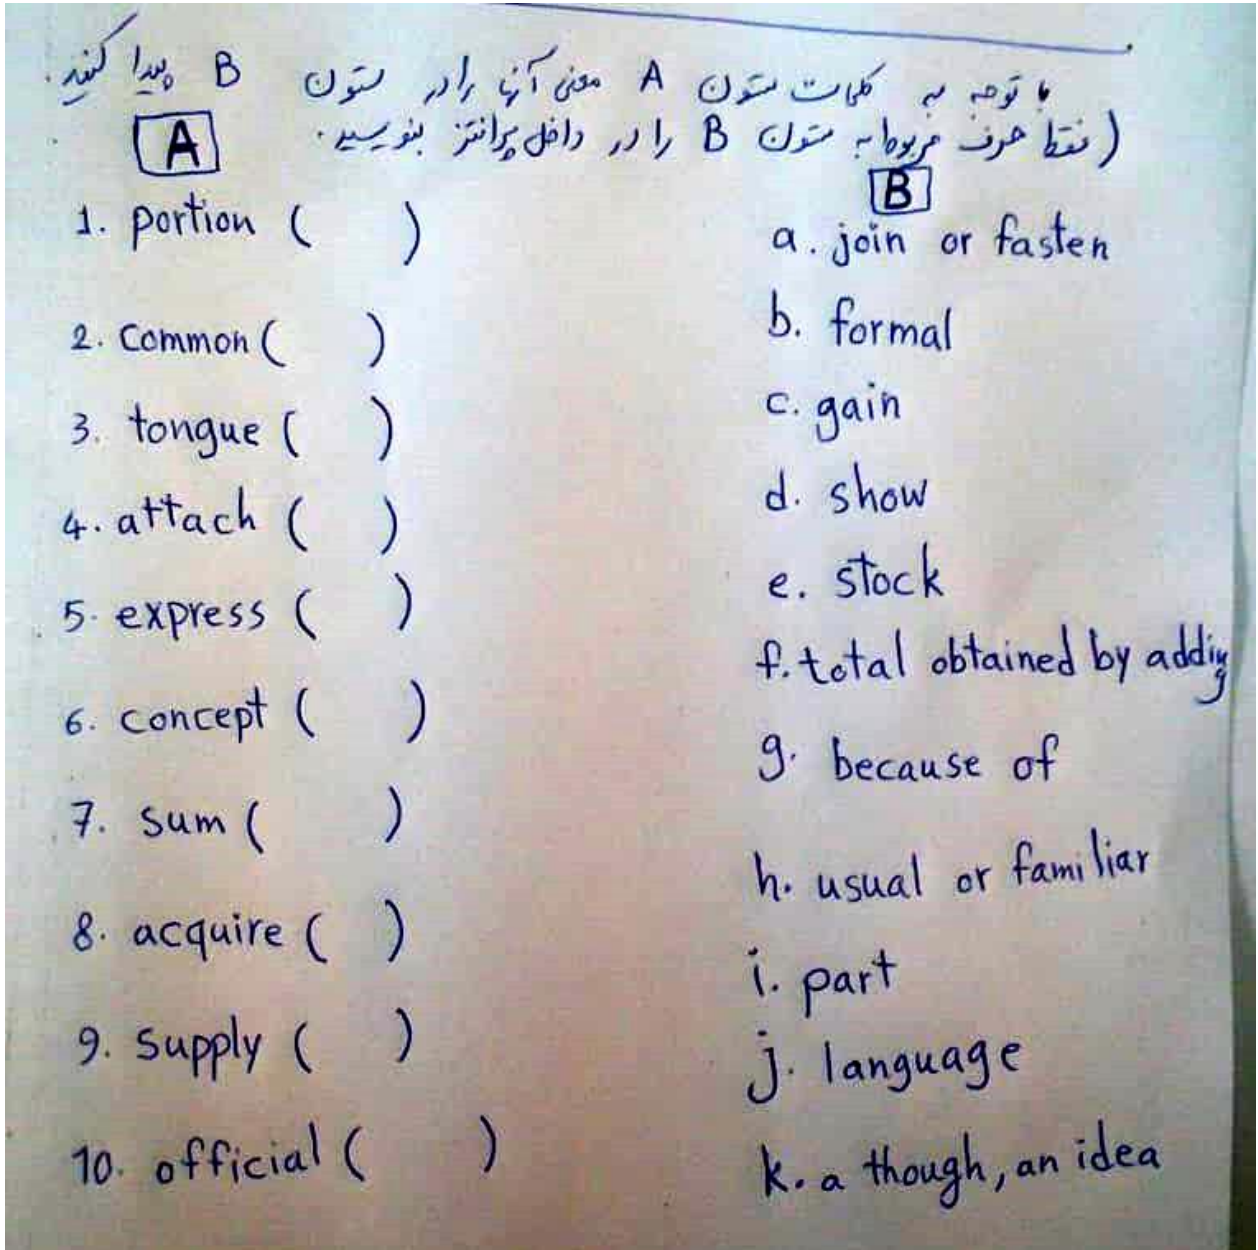 با توجه به کلمات ستون A معنی آنها را در ستون B پیدا کنید.
( فقط حرف مربوط به ستون B را در داخل پرانتز بنویسید.
A
1. portion ( )
2. Common ( )
3. tongue ( )
4. attach ( )
5. express ( )
6. concept ( )
7. sum ( )
8. acquire ( )
9. supply ( )
10. official ( )
B
a. join or fasten
b. formal
c. gain
d. show
e. stock
f. total obtained by adding
g. because of
h. usual or familiar
i. part
j. language
k. a though, an idea